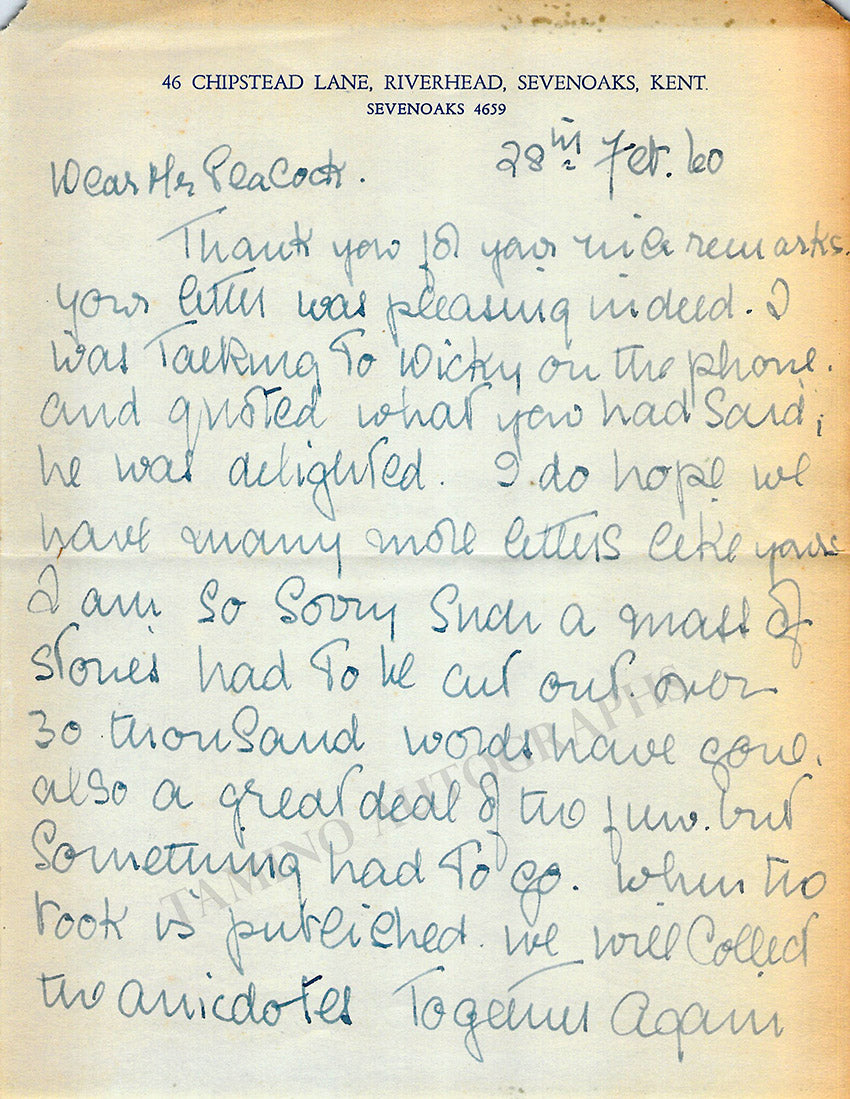 46 CHIPSTEAD LANE, RIVERHEAD, SEVENOAKS, KENT.
SEVENOAKS 4659
28th Feb. 60
Dear Mr Peacock.
Thank you for your nice remarks.
your letter was pleasing indeed. I
was Talking To Wicky on the phone.
and quoted what you had Said,
he was delighted. I do hope we
have many more letters like yours
I am So Sorry Such a mass of
stories had To be cut out. over
30 thousand words have gone.
also a great deal of the fun. but
Something had To go. When the
book is published. we will Collect
the anicdotes Together Again
TAMINO AUTOGRAPHS